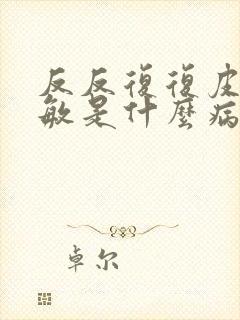 反反復復皮
敏是什麼病
卓尔